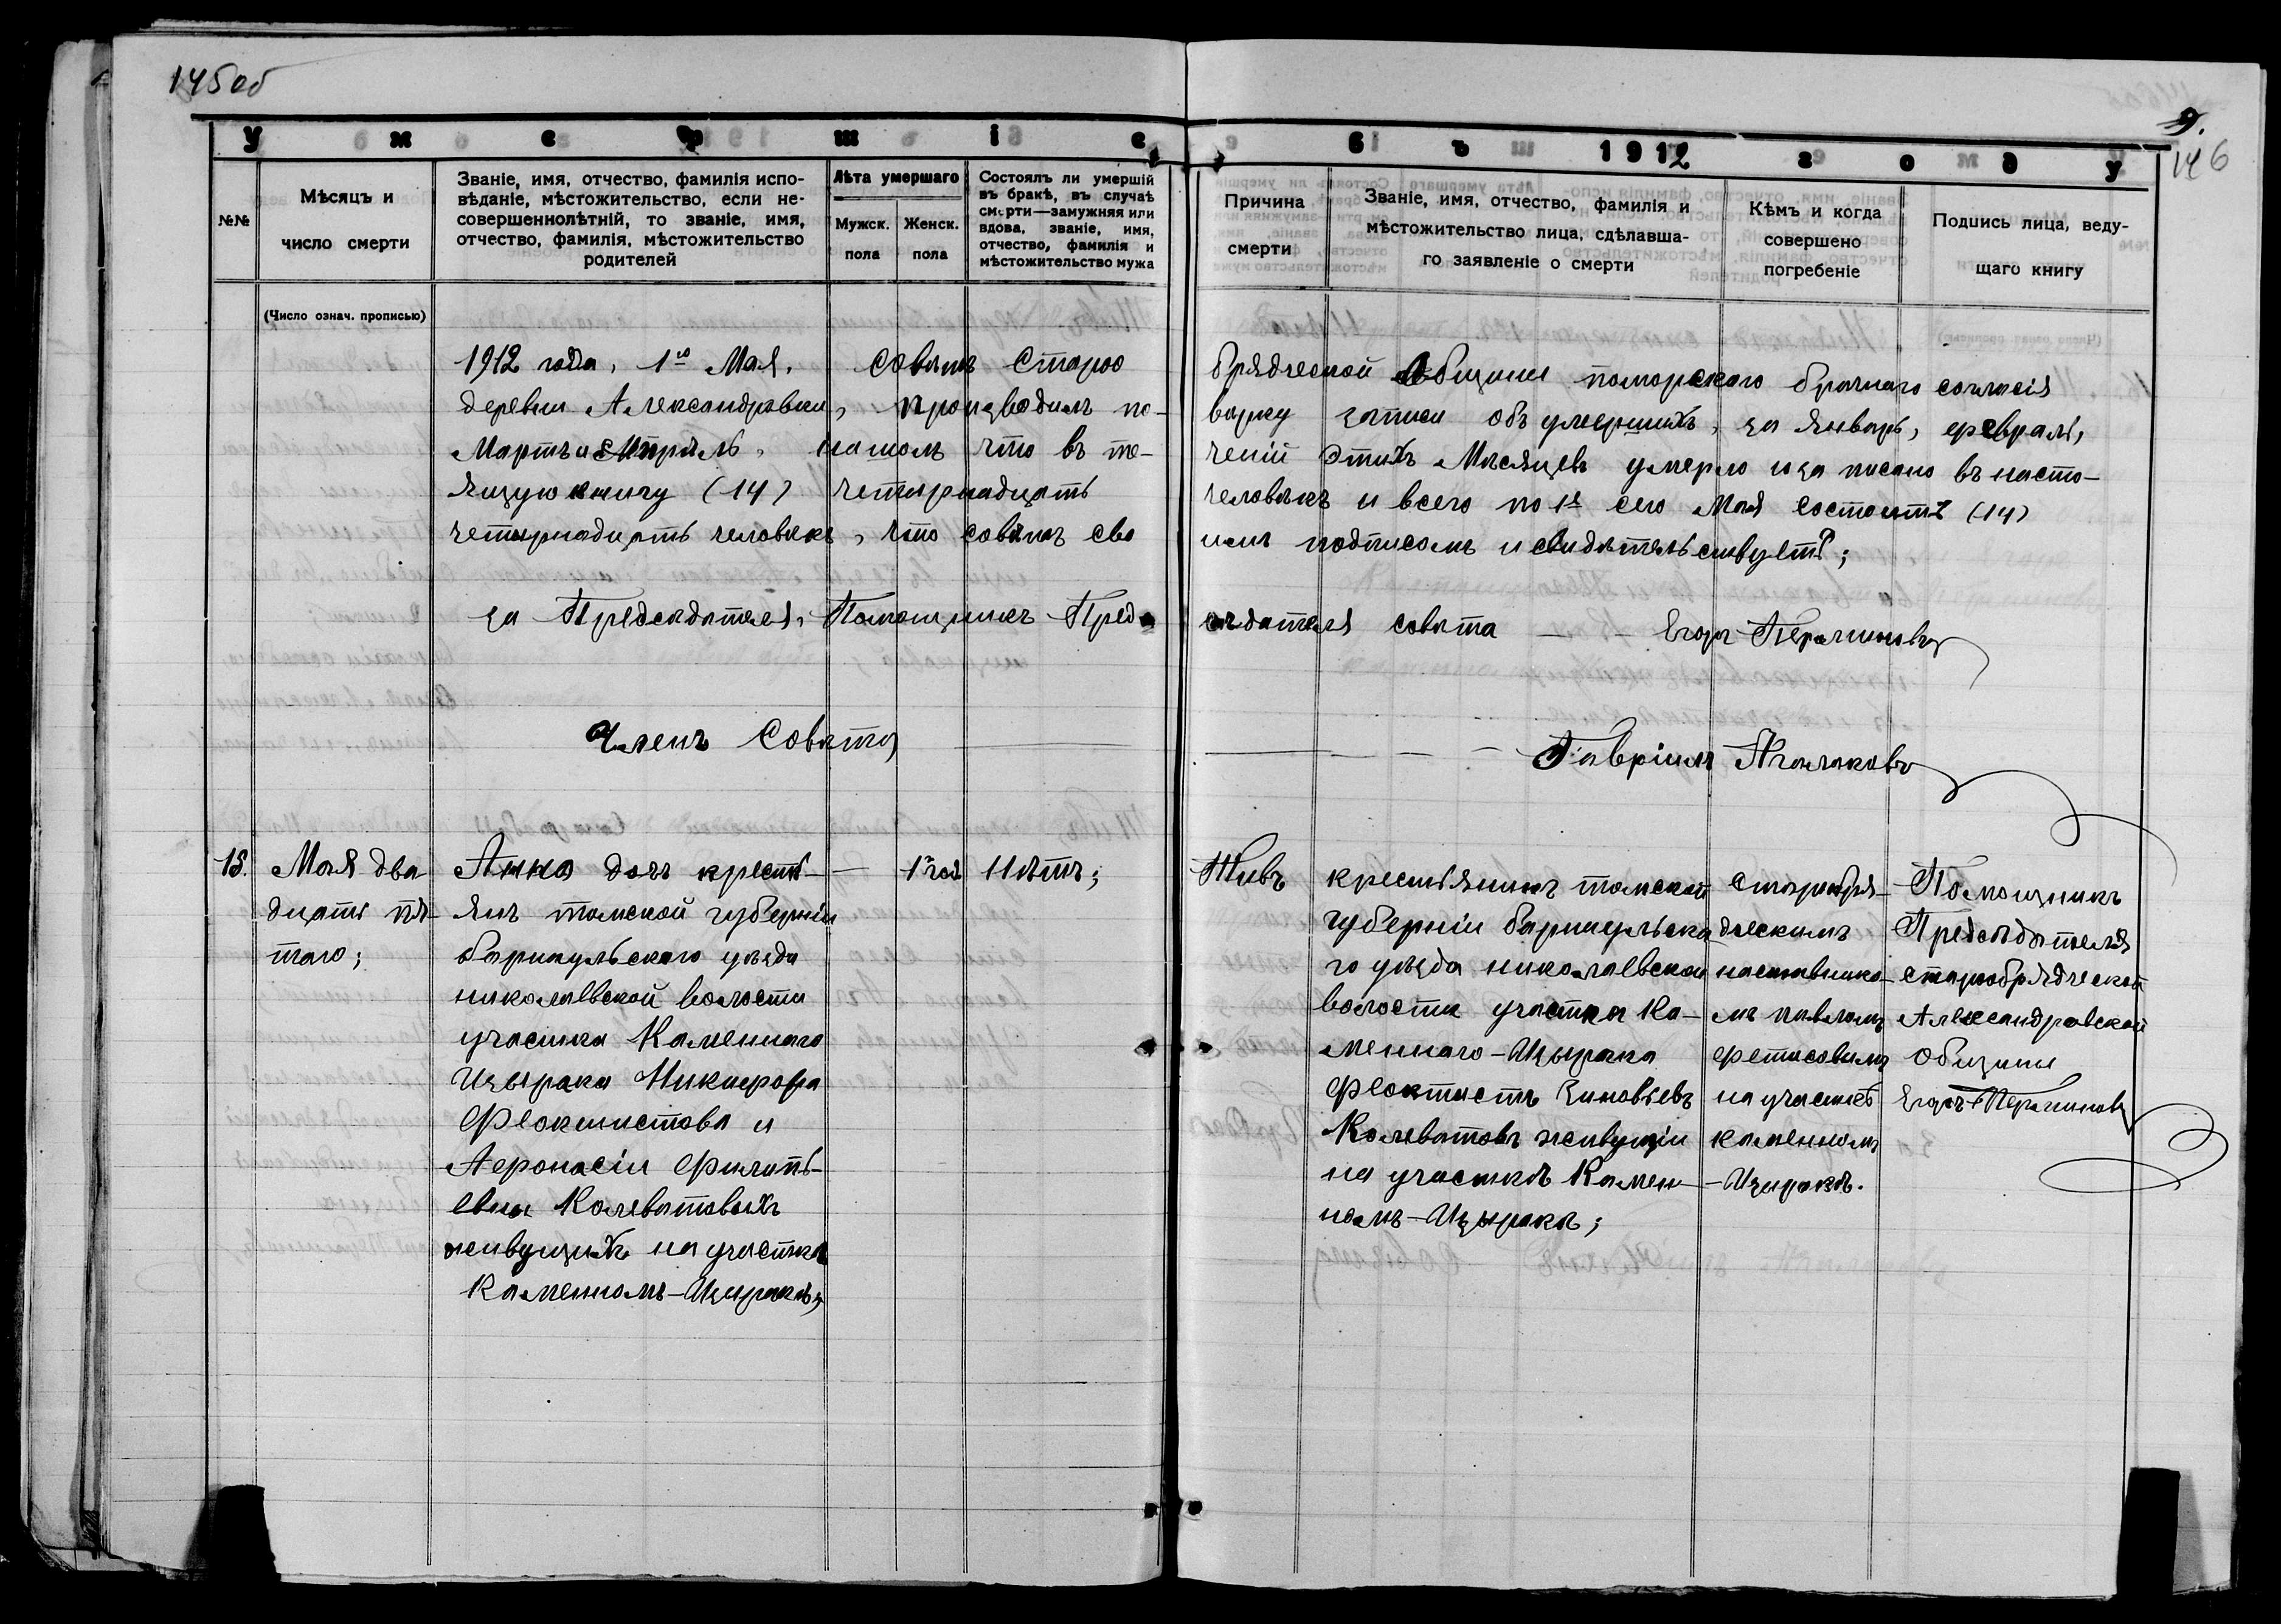 145 об
9.
146
Умершіе въ 1912 году
№№
Мѣсяцъ и
число смерти
(Число означ. прописью)
Званіе, имя, отчество, фамилія испо-
вѣданіе, мѣстожительство, если не-
совершеннолѣтній, то званіе, имя,
отчество, фамилія, мѣстожительство
родителей
Лѣта умершаго
Мужск.
пола
Женск.
пола
Состоялъ ли умершій
въ бракѣ, въ случаѣ
смерти—замужняя или
вдова, званіе, имя,
отчество, фамилія и
мѣстожительство мужа
Причина
смерти
Званіе, имя, отчество, фамилія и
мѣстожительство лица, сдѣлавша-
го заявленіе о смерти
Кѣмъ и когда
совершено
погребеніе
Подпись лица, веду-
щаго книгу
1912 года, 1го Мая. Совѣтъ Старообрядческой Общины поморскаго брачнаго согласія
деревни Александравки, производилъ поверку записи объ умершихъ, за январь, февраль,
Мартъ и Апрѣль, нашолъ что въ теченіи этихъ Мѣсяцевъ умерло и записано въ насто-
ящую книгу (14) четырнадцать человѣкъ и всего по 1е сего Мая состоитъ (14)
четырнадцать человѣкъ, что совѣтъ своимъ подписомъ и свидѣтельствуетъ;
за Председателя, Помощникъ Председателя совѣта — — Егоръ Перминовъ
Членъ Совѣта — — — Гавріилъ
15.
Мая два
дцать пя-
таго;
Анна дочь кресть-
янъ томской губерніи
барнаульскаго уѣзда
николаевской волости
участка Каменнаго
Изырака Никифора
Феоктистова и
Афонасіи Филипь-
евны Колеватовыхъ
живущихъ на участкѣ
Каменномъ-Изыракѣ;
—
1 год
Нѣтъ;
крестьянинъ томской
губерніи барнаульска
го уѣзда николаевской
волости участка Ка-
меннаго-Изырака
Феоктистъ Зиновьевъ
Колеватовъ живущій
на участкѣ Камен
номъ-Изыракѣ;
старобря-
дческимъ
наставнико-
мъ павломъ
фетисовымъ
на участкѣ
каменномъ
-Изыракѣ.
Помощникъ
Председателя
старобрядческой
Александровской
Общины
Егоръ Перминовъ